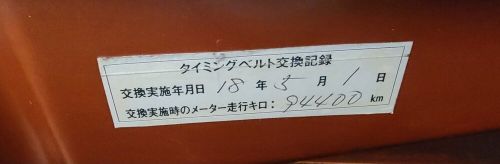 タイミングベルト交換記録
交換実施年月日 18 年 5 月 1 日
交換実施時のメーター走行キロ: 94400 km